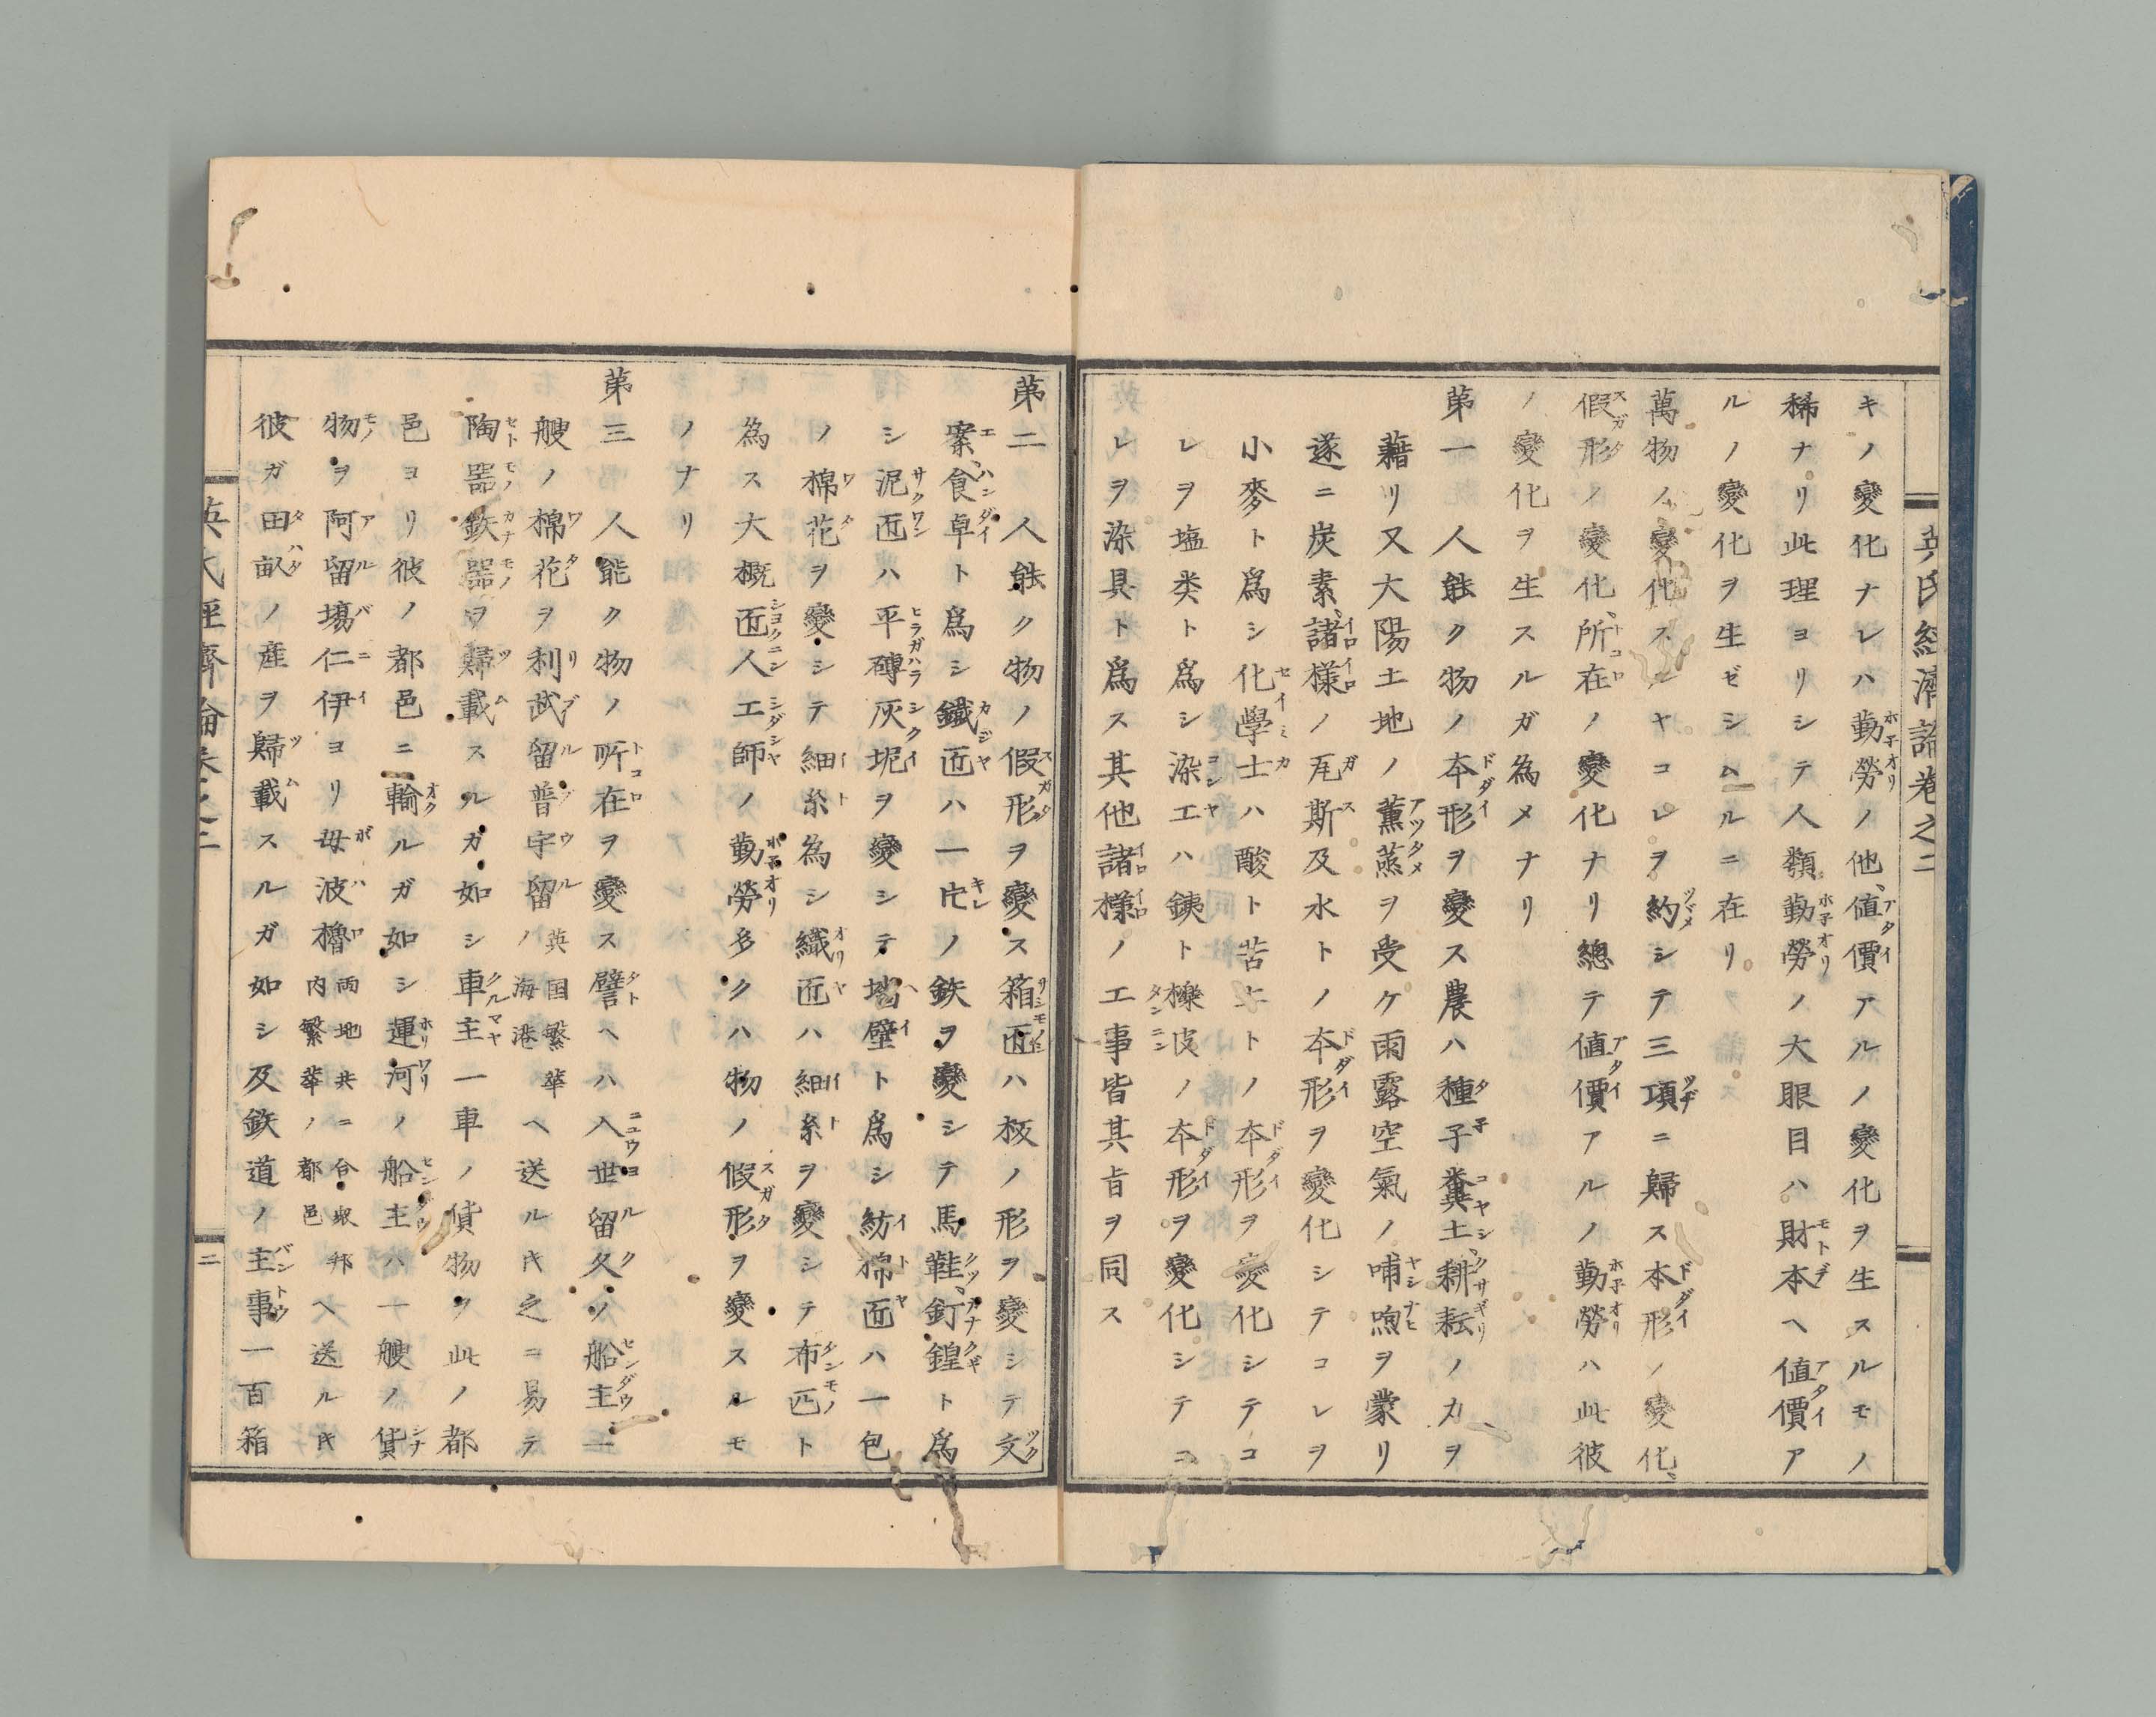 英氏経濟論巻之二
キノ變化ナレハ勤勞ノ他、値價アルノ變化ヲ生スルモノ
稀ナリ此理ヨリシテ人類勤勞ノ大眼目ハ財本ヘ値價ア
ルノ變化ヲ生ゼシムルニ在リ
萬物ノ變化スレヤコレヲ約シテ三項ニ歸ス本形ノ變化、
假形ノ變化、所在ノ變化ナリ總テ値價アルノ勤勞ハ此彼
ノ變化ヲ生スルガ為メナリ
第一 人能ク物ノ本形ヲ變ス農ハ種子糞土、耕耘ノ力ヲ
藉リ又大陽土地ノ薫蒸ヲ受ケ雨露空氣ノ哺喣ヲ蒙リ
遂ニ炭素、諸様ノ瓦斯及水トノ本形ヲ變化シテコレヲ
小麥ト爲シ化學士ハ酸ト苦土トノ本形ヲ変化シテコ
レヲ塩类ト爲シ染工ハ銕ト檪皮ノ本形ヲ變化シテコ
レヲ染具ト爲ス其他諸様ノ工事皆其旨ヲ同ス
第二 人能ク物ノ假形ヲ變ス箱匠ハ板ノ形ヲ變シテ文
案、食卓ト爲シ鐵匠ハ一片ノ鉄ヲ變シテ馬鞋、釘鍠ト爲
シ泥匠ハ平磚灰坭ヲ變シテ墻壁ト爲シ紡棉匠ハ一包
ノ棉花ヲ變シテ細糸為シ織匠ハ細糸ヲ變シテ布匹ト
為ス大概匠人工師ノ勤勞多クハ物ノ假形ヲ變スルモ
ノナリ
第三 人能ク物ノ所在ヲ變ス譬ヘハ入世留久ノ船主一
艘ノ棉花ヲ利武留普宇留英国繁華ノ海港ヘ送ルキ之ニ易テ
陶器鉄器ヲ歸載スルガ如シ車主一車ノ貨物ヲ此ノ都
邑ヨリ彼ノ都邑ニ輸ルガ如シ運河ノ船主ハ一艘ノ貨
物ヲ阿留塲仁伊ヨリ母波櫓両地共ニ合衆邦内繁華ノ都邑ヘ送ルキ
彼ガ田畝ノ産ヲ歸載スルガ如シ及鉄道ノ主事一百箱
英氏経濟論巻之二
二